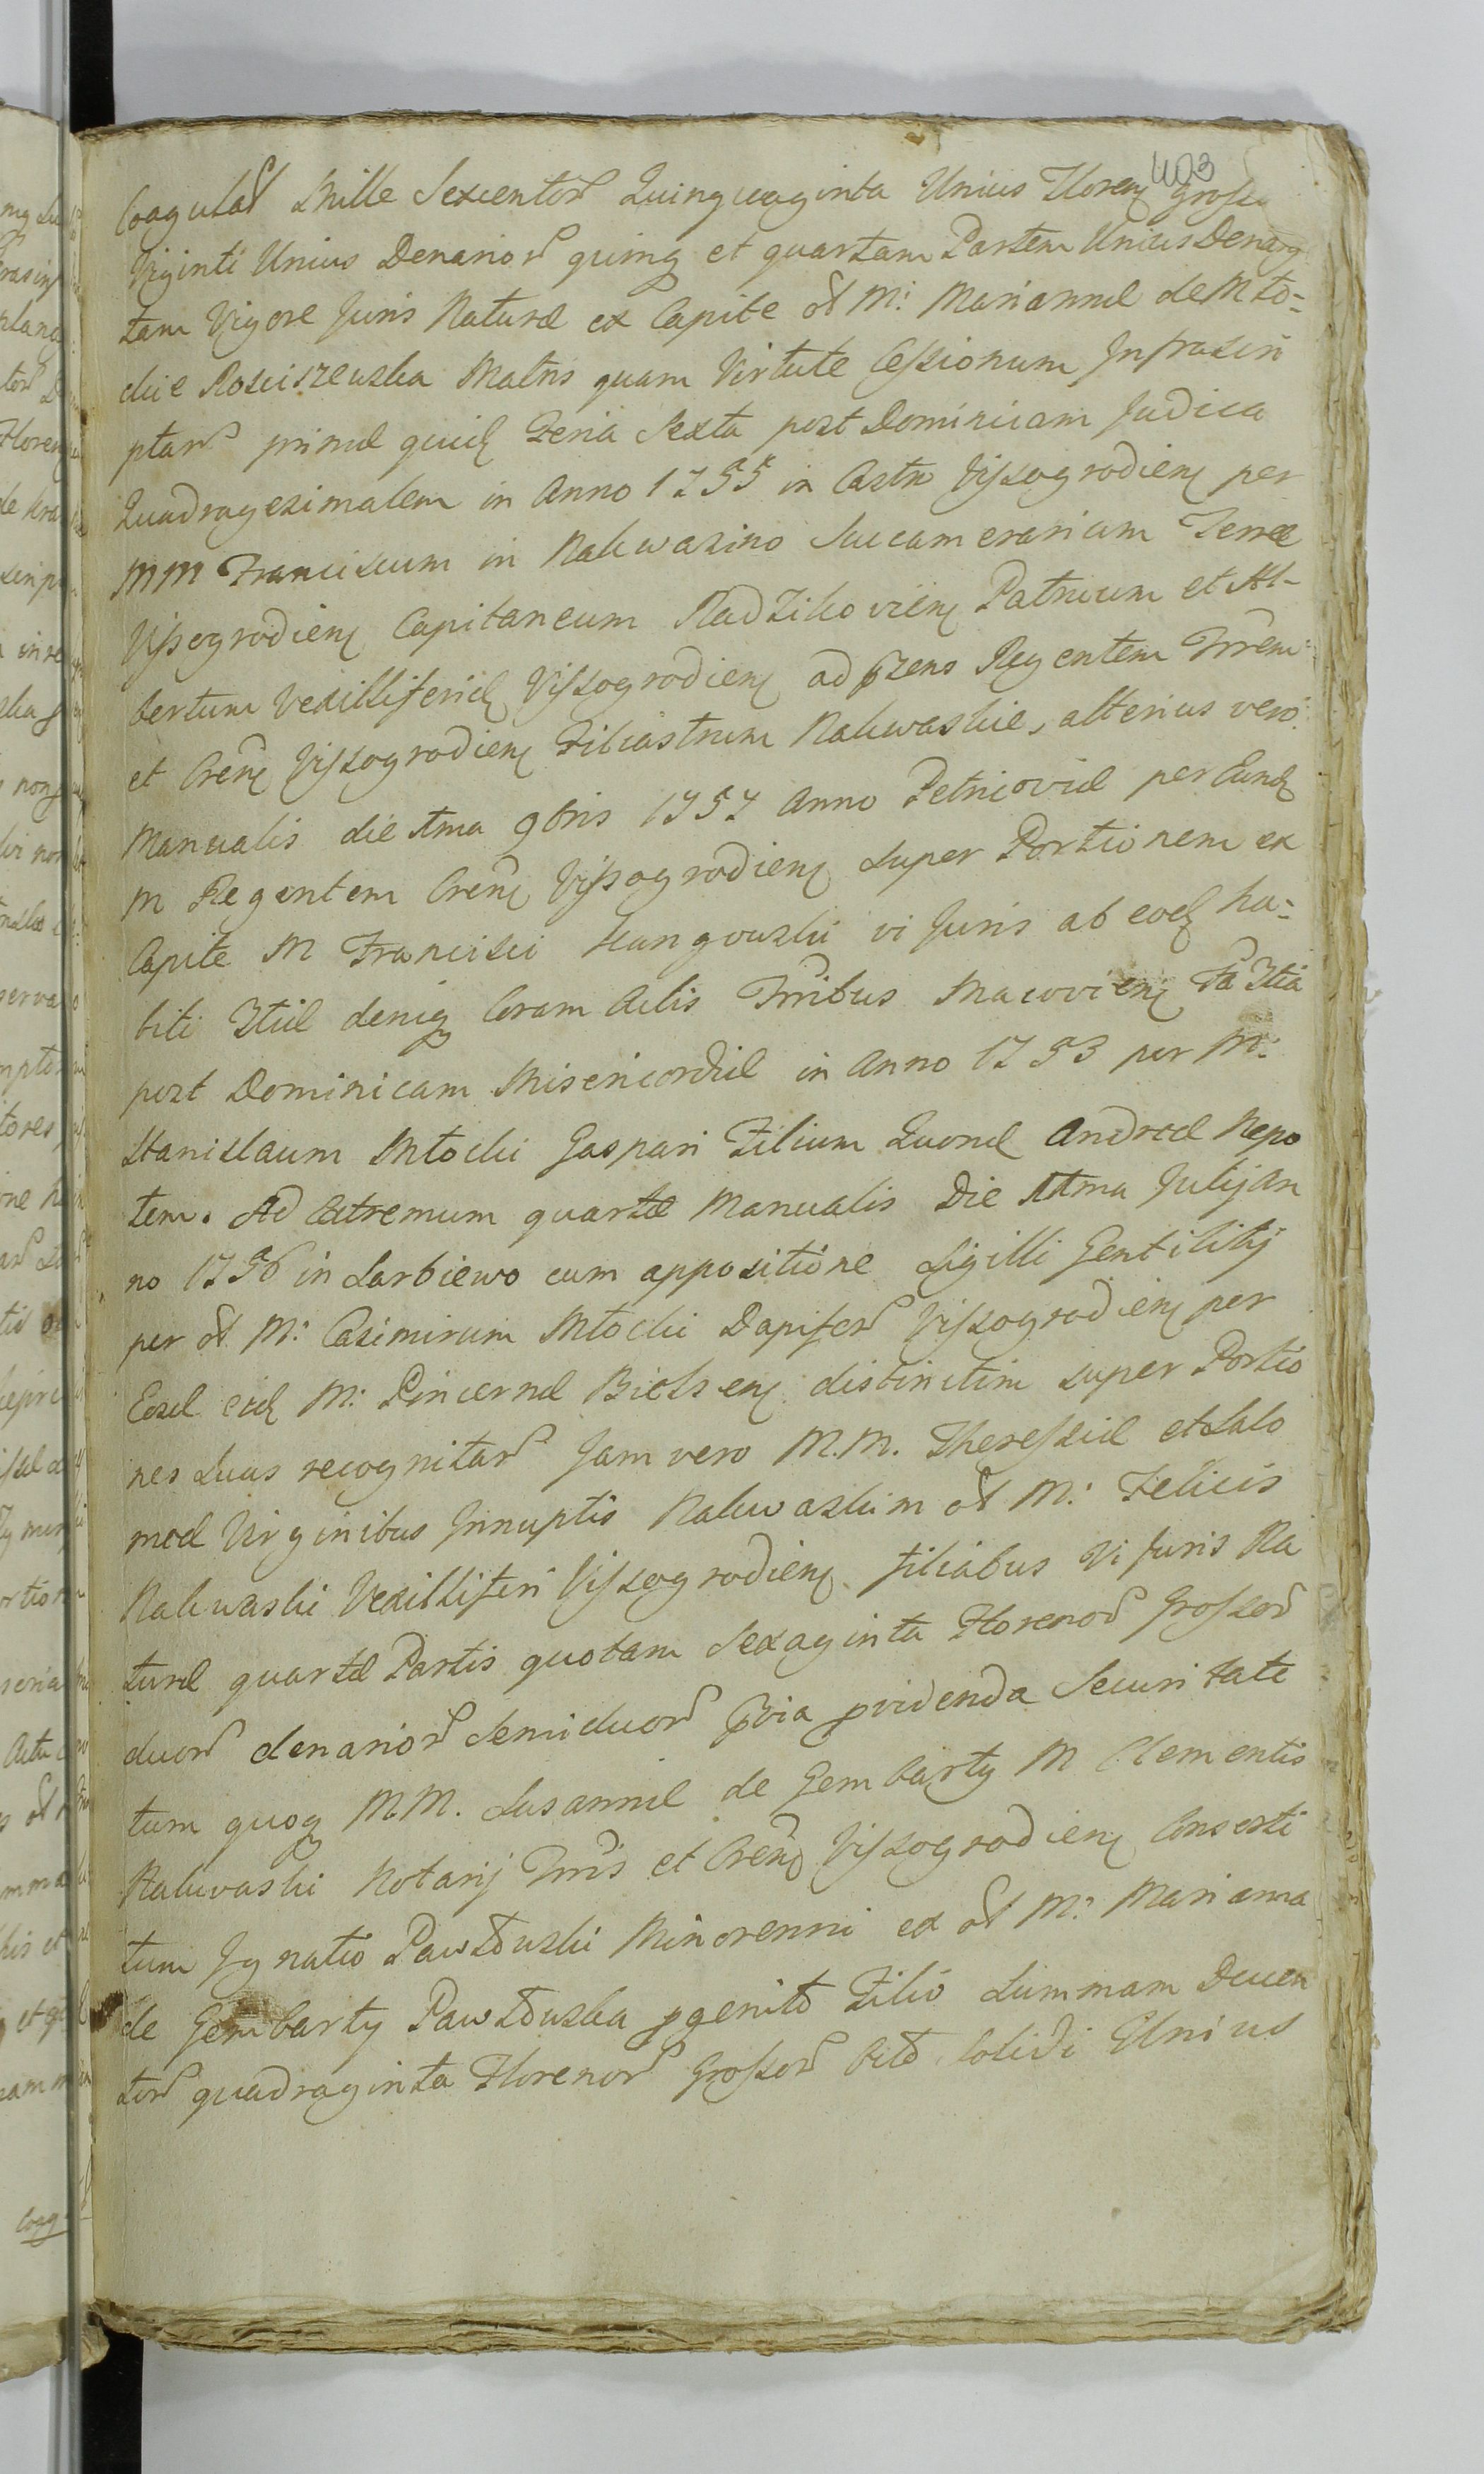 403
Coagulaȓ Mille Sexcentoȓ Quinquaginta Unius Floren Grossor
Viginti Unius Denarioȓ quinq et quartam Partem Unius Denarij
tam Vigore Juris Naturæ ex Capite ol M: Mariannæ de Mło-
ckie Rosciszewska Matris quam Virtute Cessionum Infrascri
ptaȓ primæ quid Feria Sexta post Dominicam Judica
Quadragesimalem in Anno 1755 in Castro Vissogrodien per
MM Franciscum in Nakwasino Succamerarium Terræ
Vissogrodien Capitaneum Radzikovien Patruum et Al-
bertum Vexilliferid Vissogrodien ad pzens Regentem Trrem
et Cren Vissogrodien Filiastrum Nakwaskie, alterius vero
Manualis die 1ma 9bris 1757 Anno Petricoviæ per Eund
M Regentem Cren Vissogrodien super Portionem ex
Capite M Francisci Kungowski vi Juris ab eod ha-
biti 3tiæ deniq Coram Actis Trribus Macovien Fa 3tia
post Dominicam Misericordiæ in Anno 1753 per M:
Stanislaum Młocki Gaspari Filium Quond Andreæ Nepo
tem. Ad Extremum quartæ Manualis Die 11tma Julij An
no 1756 in Sarbiewo cum appositione Sigilli Gentilitij
per ol M: Casimirum Młocki Dapiferȓ Vissogrodien per
Eosd eid M: Pincernæ Bielsen distinctim super Portio
nes suas recognitaȓ Jam vero M.M. Theressiæ et Salo
meæ Virginibus Innuptis Nakwaskim ol M: Felicis
Nakwaski Vexilliferi Vissogrodien filiabus Vi Juris Na
turæ quartæ Partis quotam Sexaginta Florenoȓ Grossoȓ
duoȓ denarioȓ Semiduoȓ pvia pvidenda Securitate
tum quoq MM. Susannæ de Gembarty M Clementis
Nakwaski Notarij Trris et Cren Vissogrodien Consorti
tum Ignatio Pawłowski Minorenni ex ol M: Marianna
de Gembarty Pawłowska pgenito Filio Summam Ducen
toȓ quadraginta Florenoȓ Grossoȓ octo Solidi Unius